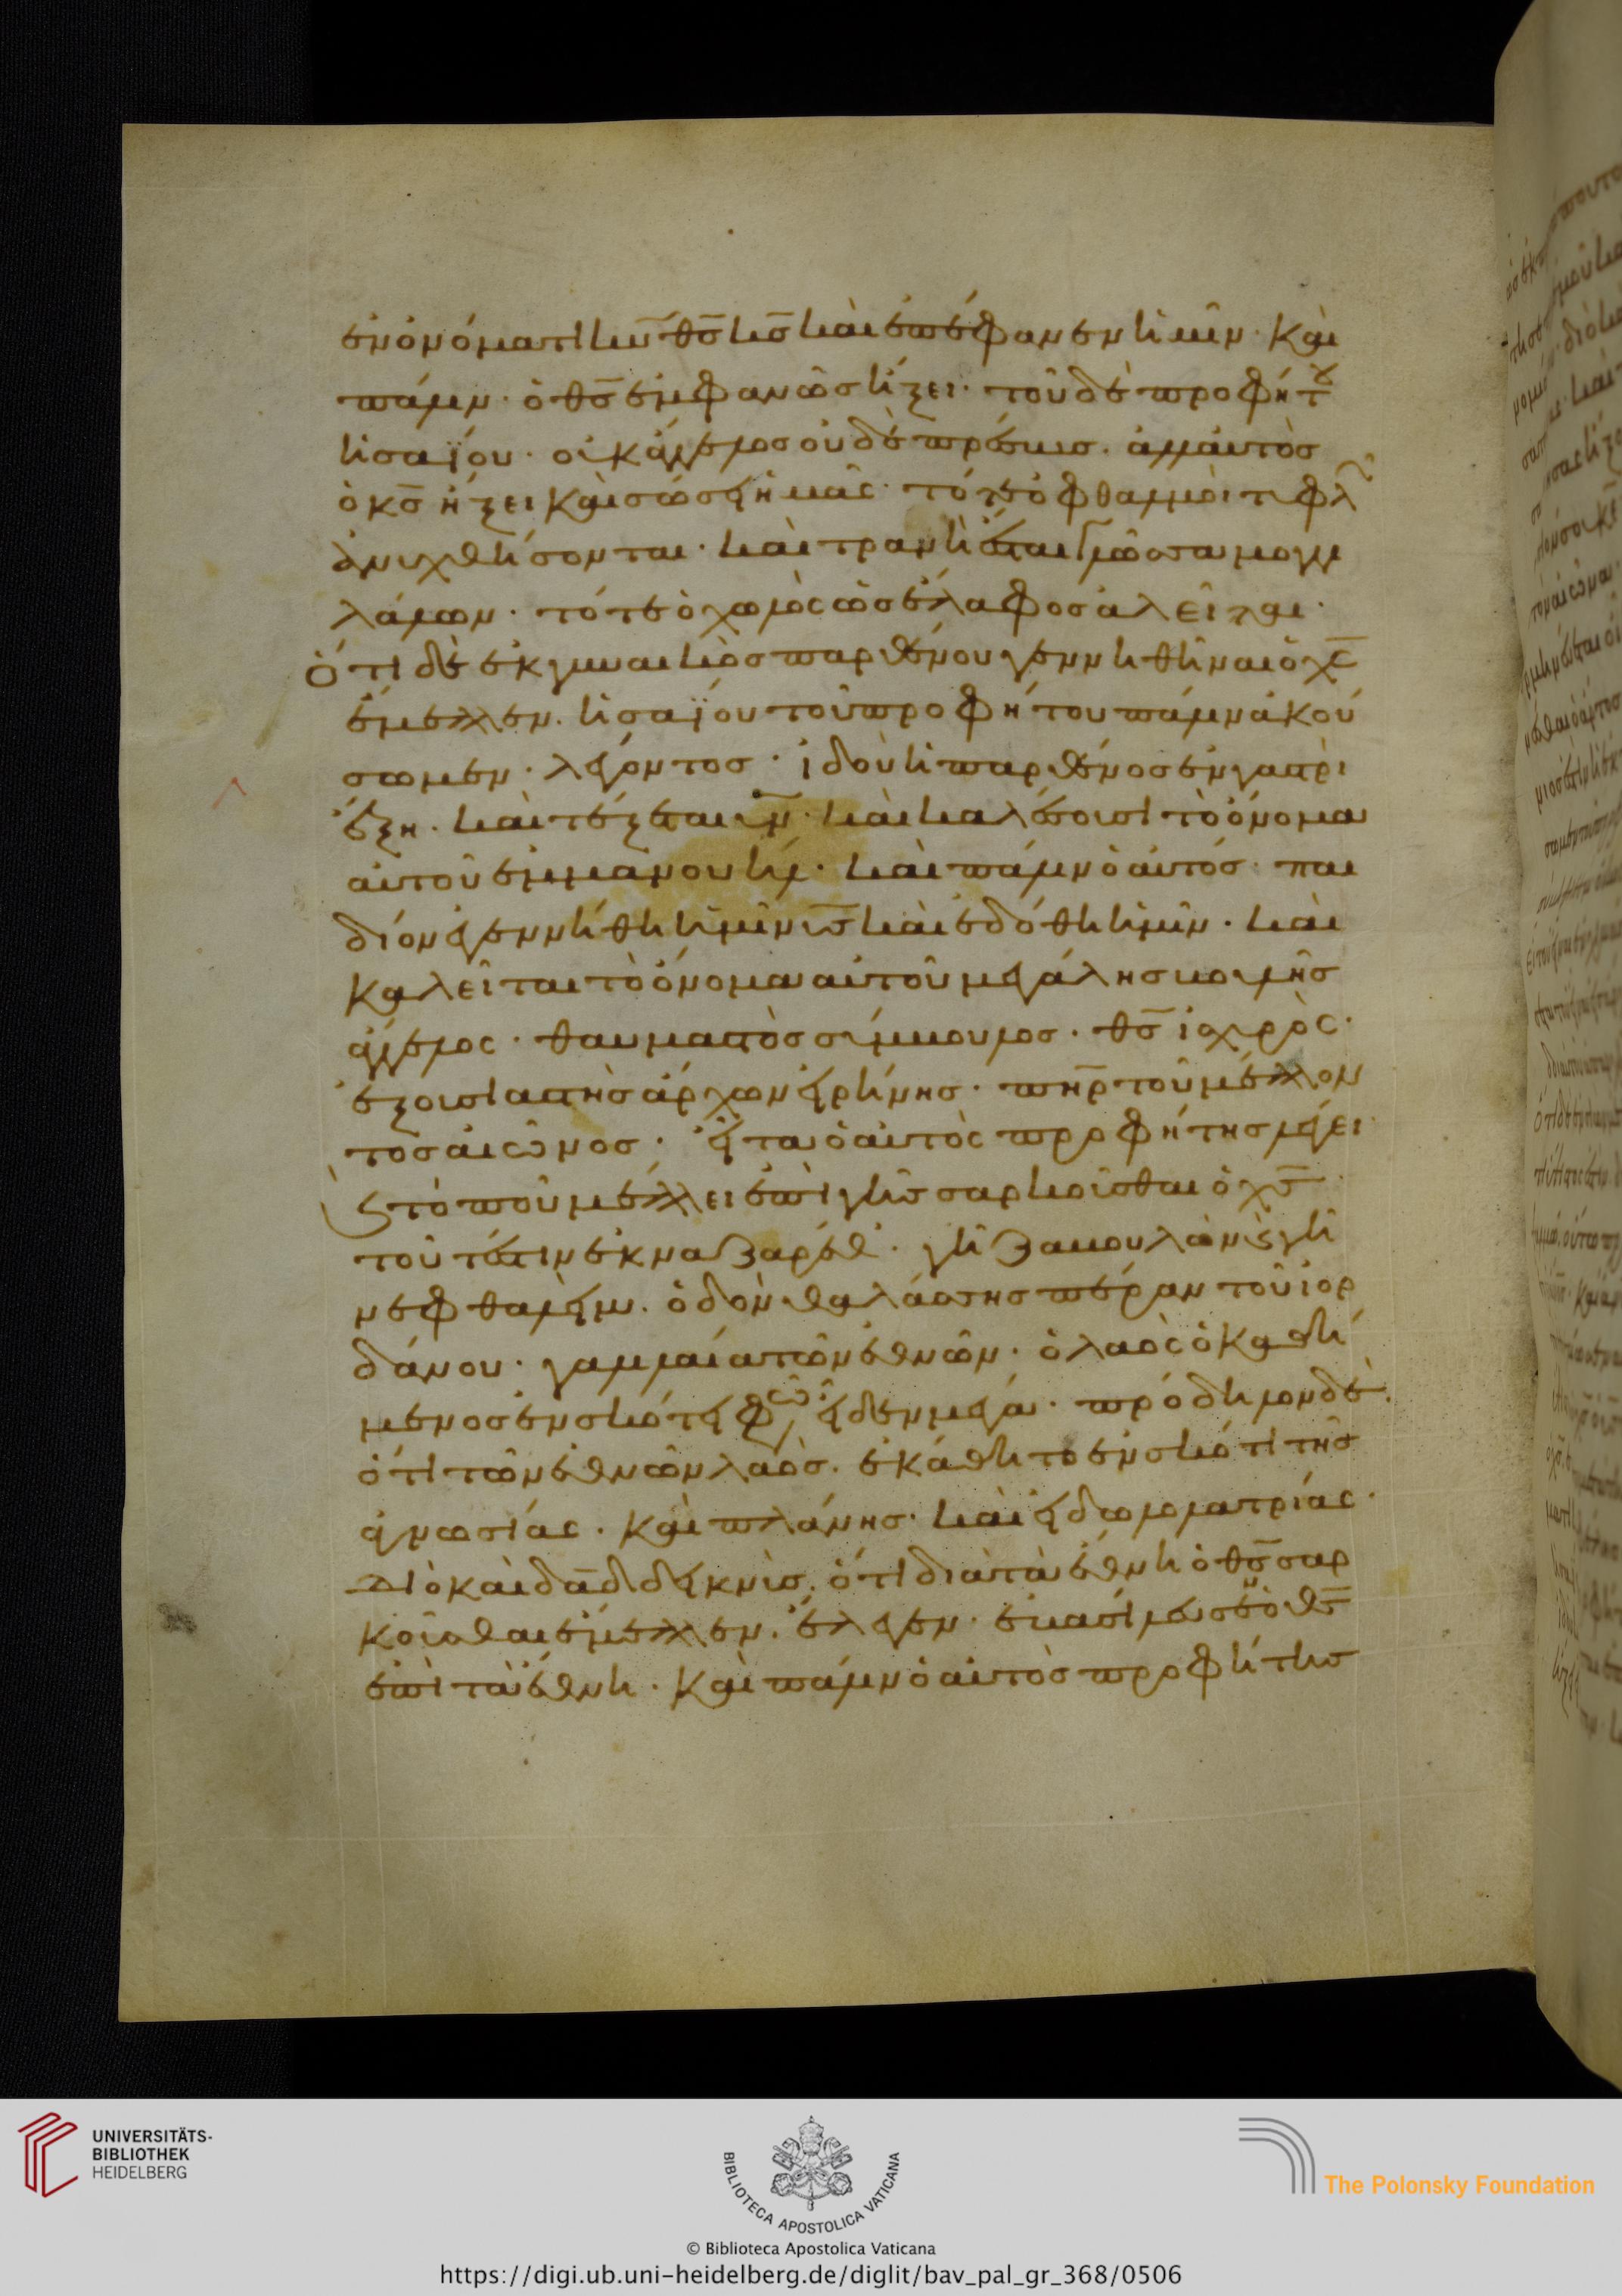 ἐν ὀνόματι κυ̅ θς̅ κς̅ καὶ ἐπέφανεν ἡμῖν· καὶ
πάλιν· ὁ θς̅ ἐμφανῶς ἥξει· τοῦ δὲ προφήτου
ἡσαΐου· οὐκ ἄγγελος οὐδὲ πρέσβις. ἀλλ' αὐτὸς
ὁ κς̅ ἥξει καὶ σώσει ἡμᾶς· τότε ὀφθαλμοὶ τυφλῶν
ἀνυχθήσονται· καὶ τρανὴ ἔσται γλῶσσα μογγι
λάλων· τότε ὁ χωλὸς ὡς ἔλαφος ἁλεῖται·
Ὅτι δὲ ἐκ γυναικὸς παρθένου γεννηθῆναι ὁ χς̅
ἔμελλεν. ἡσαΐου τοῦ προφήτου πάλιν ἀκού
σωμεν· λέγοντος· ἰδοὺ ἡ παρθένος ἐν γαστρὶ
ἕξη. καὶ τέξεται υν̅· καὶ καλέσουσι τὸ ὄνομα
αὐτοῦ ἐμμανουήλ· καὶ πάλιν ὁ αὐτός· παι
δίον ἐγεννήθη ἡμῖν υς̅ καὶ ἐδόθη ἡμῖν. καὶ
καλεῖται τὸ ὄνομα αὐτοῦ μεγάλης βουλῆς
ἄγγελος· θαυμαστὸς σύμβουλος. θς̅ ἰσχυρὸς·
ἐξουσιαστὴς ἄρχων εἰρήνης. πηρ̅ τοῦ μέλλον
τος αἰῶνος. εἶτα ὁ αὐτὸς προφήτης λέγει
τὸ ποῦ μέλλει ἐπὶ γῆς σαρκοῦσθαι ὁ χς̅
τοῦτέστιν ἐκ ναζαρέθ. γῆ ζαβουλὼν καὶ γῆ
νεφθαλείμ. ὁδὸν θαλάσσης πέραν τοῦ ἰορ
δάνου· γαλιλαία τῶν ἐθνῶν· ὁ λαὸς ὁ καθή
μενος ἐν σκότει φῶς εἶδεν μέγα. πρόδηλον δὲ.
ὅτι τῶν ἐθνῶν λαὸς. ἐκάθητο ἐν σκότι τῆς
ἀγνωσίας. καὶ πλάνης· καὶ εἰδωλολατρίας·
Διὸ καὶ δα̅δ δεικνὺς. ὅτι διὰ τὰ ἔθνη ὁ θς̅ σαρ
κοῦσθαι ἔμελλεν. ἔλεγεν· ἐβασίλευσεν ὁ θς̅
ἐπὶ τὰ ἔθνη. καὶ πάλιν ὁ αὐτὸς προφήτης
UNIVERSITÄTS-
BIBLIOTHEK
HEIDELBERG
BIBLIOTECA APOSTOLICA VATICANA
The Polonsky Foundation
© Biblioteca Apostolica Vaticana
https://digi.ub.uni-heidelberg.de/diglit/bav_pal_gr_368/0506